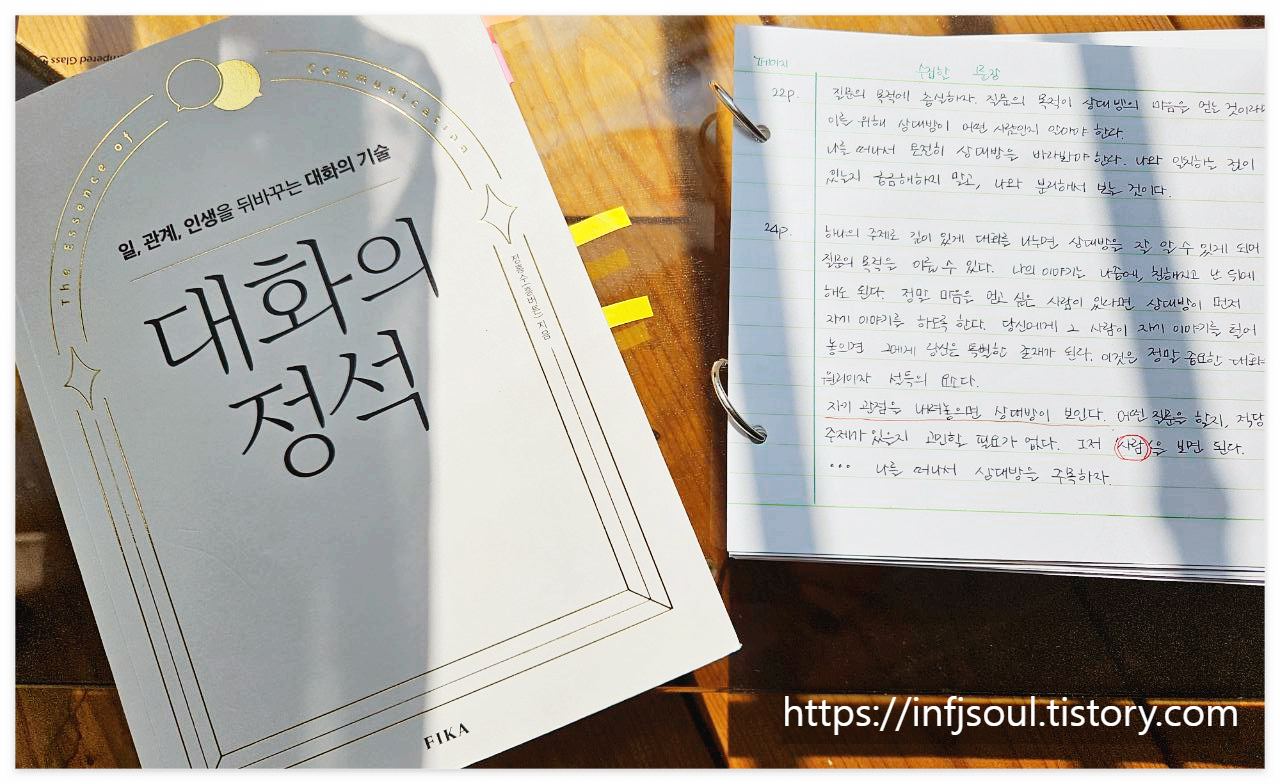 The Essence of
Communication
일, 관계, 인생을 뒤바꾸는 대화의 기술
대화의
정석
정흥수(흥버튼) 지음
FIKA
Tempered Glass
페이지 수집한 문장
22p. 질문의 목적에 충실하자. 질문의 목적이 상대방의 마음을 얻는 것이라면
이를 위해 상대방이 어떤 사람인지 알아야 한다.
나를 떠나서 온전히 상대방을 바라봐야 한다. 나와 일치하는 것이
있는지 궁금해하지 말고, 나와 분리해서 보는 것이다.
24p. 상대의 주제로 깊이 있게 대화를 나누면 상대방을 잘 알 수 있게 되며
질문의 목적은 이룰 수 있다. 나의 이야기는 나중에, 친해지고 난 뒤에
해도 된다. 정말 마음을 얻고 싶은 사람이 있다면 상대방이 먼저
자기 이야기를 하도록 한다. 당신에게 그 사람이 자기 이야기를 털어
놓으면 그에게 당신은 특별한 존재가 된다. 이것은 정말 중요한 대화
원리이자 설득의 요소다.
자기 관점을 내려놓으면 상대방이 보인다. 어떤 질문을 할지, 적당
주제가 있을지 고민할 필요가 없다. 그저 사람을 보면 된다.
••• 나를 떠나서 상대방을 주목하자.
https://infjsoul.tistory.com